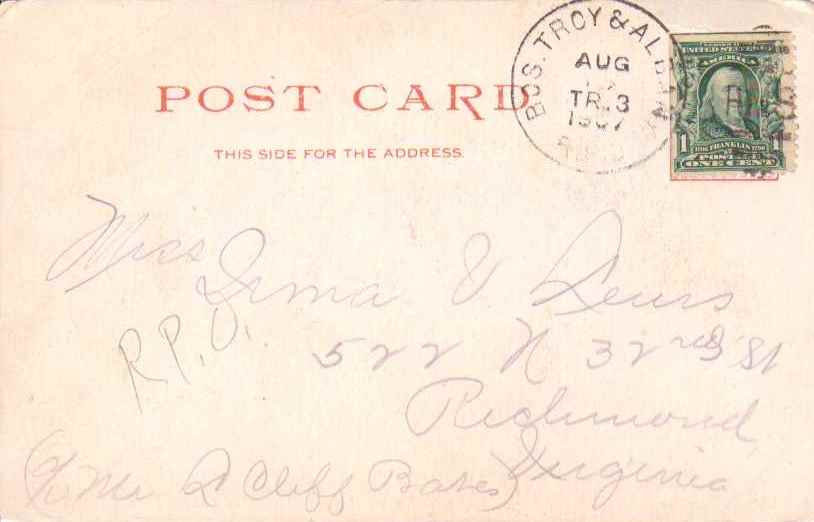 POST CARD
THIS SIDE FOR THE ADDRESS.
BOS. TROY & ALB
AUG
TR. 3
1907
R.P.O.
SERIES 1902
UNITED STATES OF
AMERICA
1706 FRANKLIN 1790
1 POSTAGE 1
ONE CENT
Miss
Irma V. Lewis
R.P.O.
522 N 32nd St
Richmond
Virginia
(c/o Mr Cliff Bates)